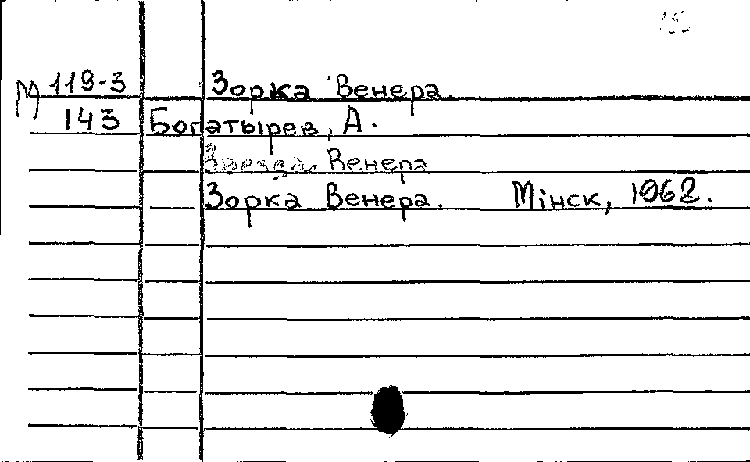 М 119-3 Зорка Венера.
143 Богатырев, А.
Звезда Венера
Зорка Венера. Мінск, 1962.